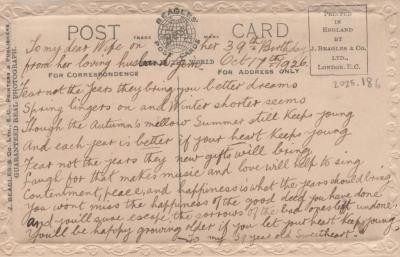 POST CARD
TRADE MARK
BEAGLES' POST CARDS
ALL THE WORLD
PRINTED
IN
ENGLAND
BY
J. BEAGLES & CO.
LTD.,
LONDON. E.C.
2025.186
J. BEAGLES & CO., LTD., E.C., PRINTERS & PUBLISHERS.
GUARANTEED REAL PHOTOGRAPH.
FOR CORRESPONDENCE
FOR ADDRESS ONLY
To my dear Wife on her 39th Birthday
from her loving husband Oct 17th 1926.
Fear not the years they bring you better dreams
Spring lingers on and Winter shorter seems
Though the Autumn's mellow Summer still Keeps young
And each year is better if your heart Keeps young
Fear not the years they new gifts will bring
Laugh for that makes music and love will help to sing
Contentment, peace, and happiness is what the years should bring
You wont miss the happiness of the good deed you have done
And you'll sure escape the sorrows of the bad ones left undone,
You'll be happy growing older if you let your heart keep young
To my 39 year old Sweetheart.